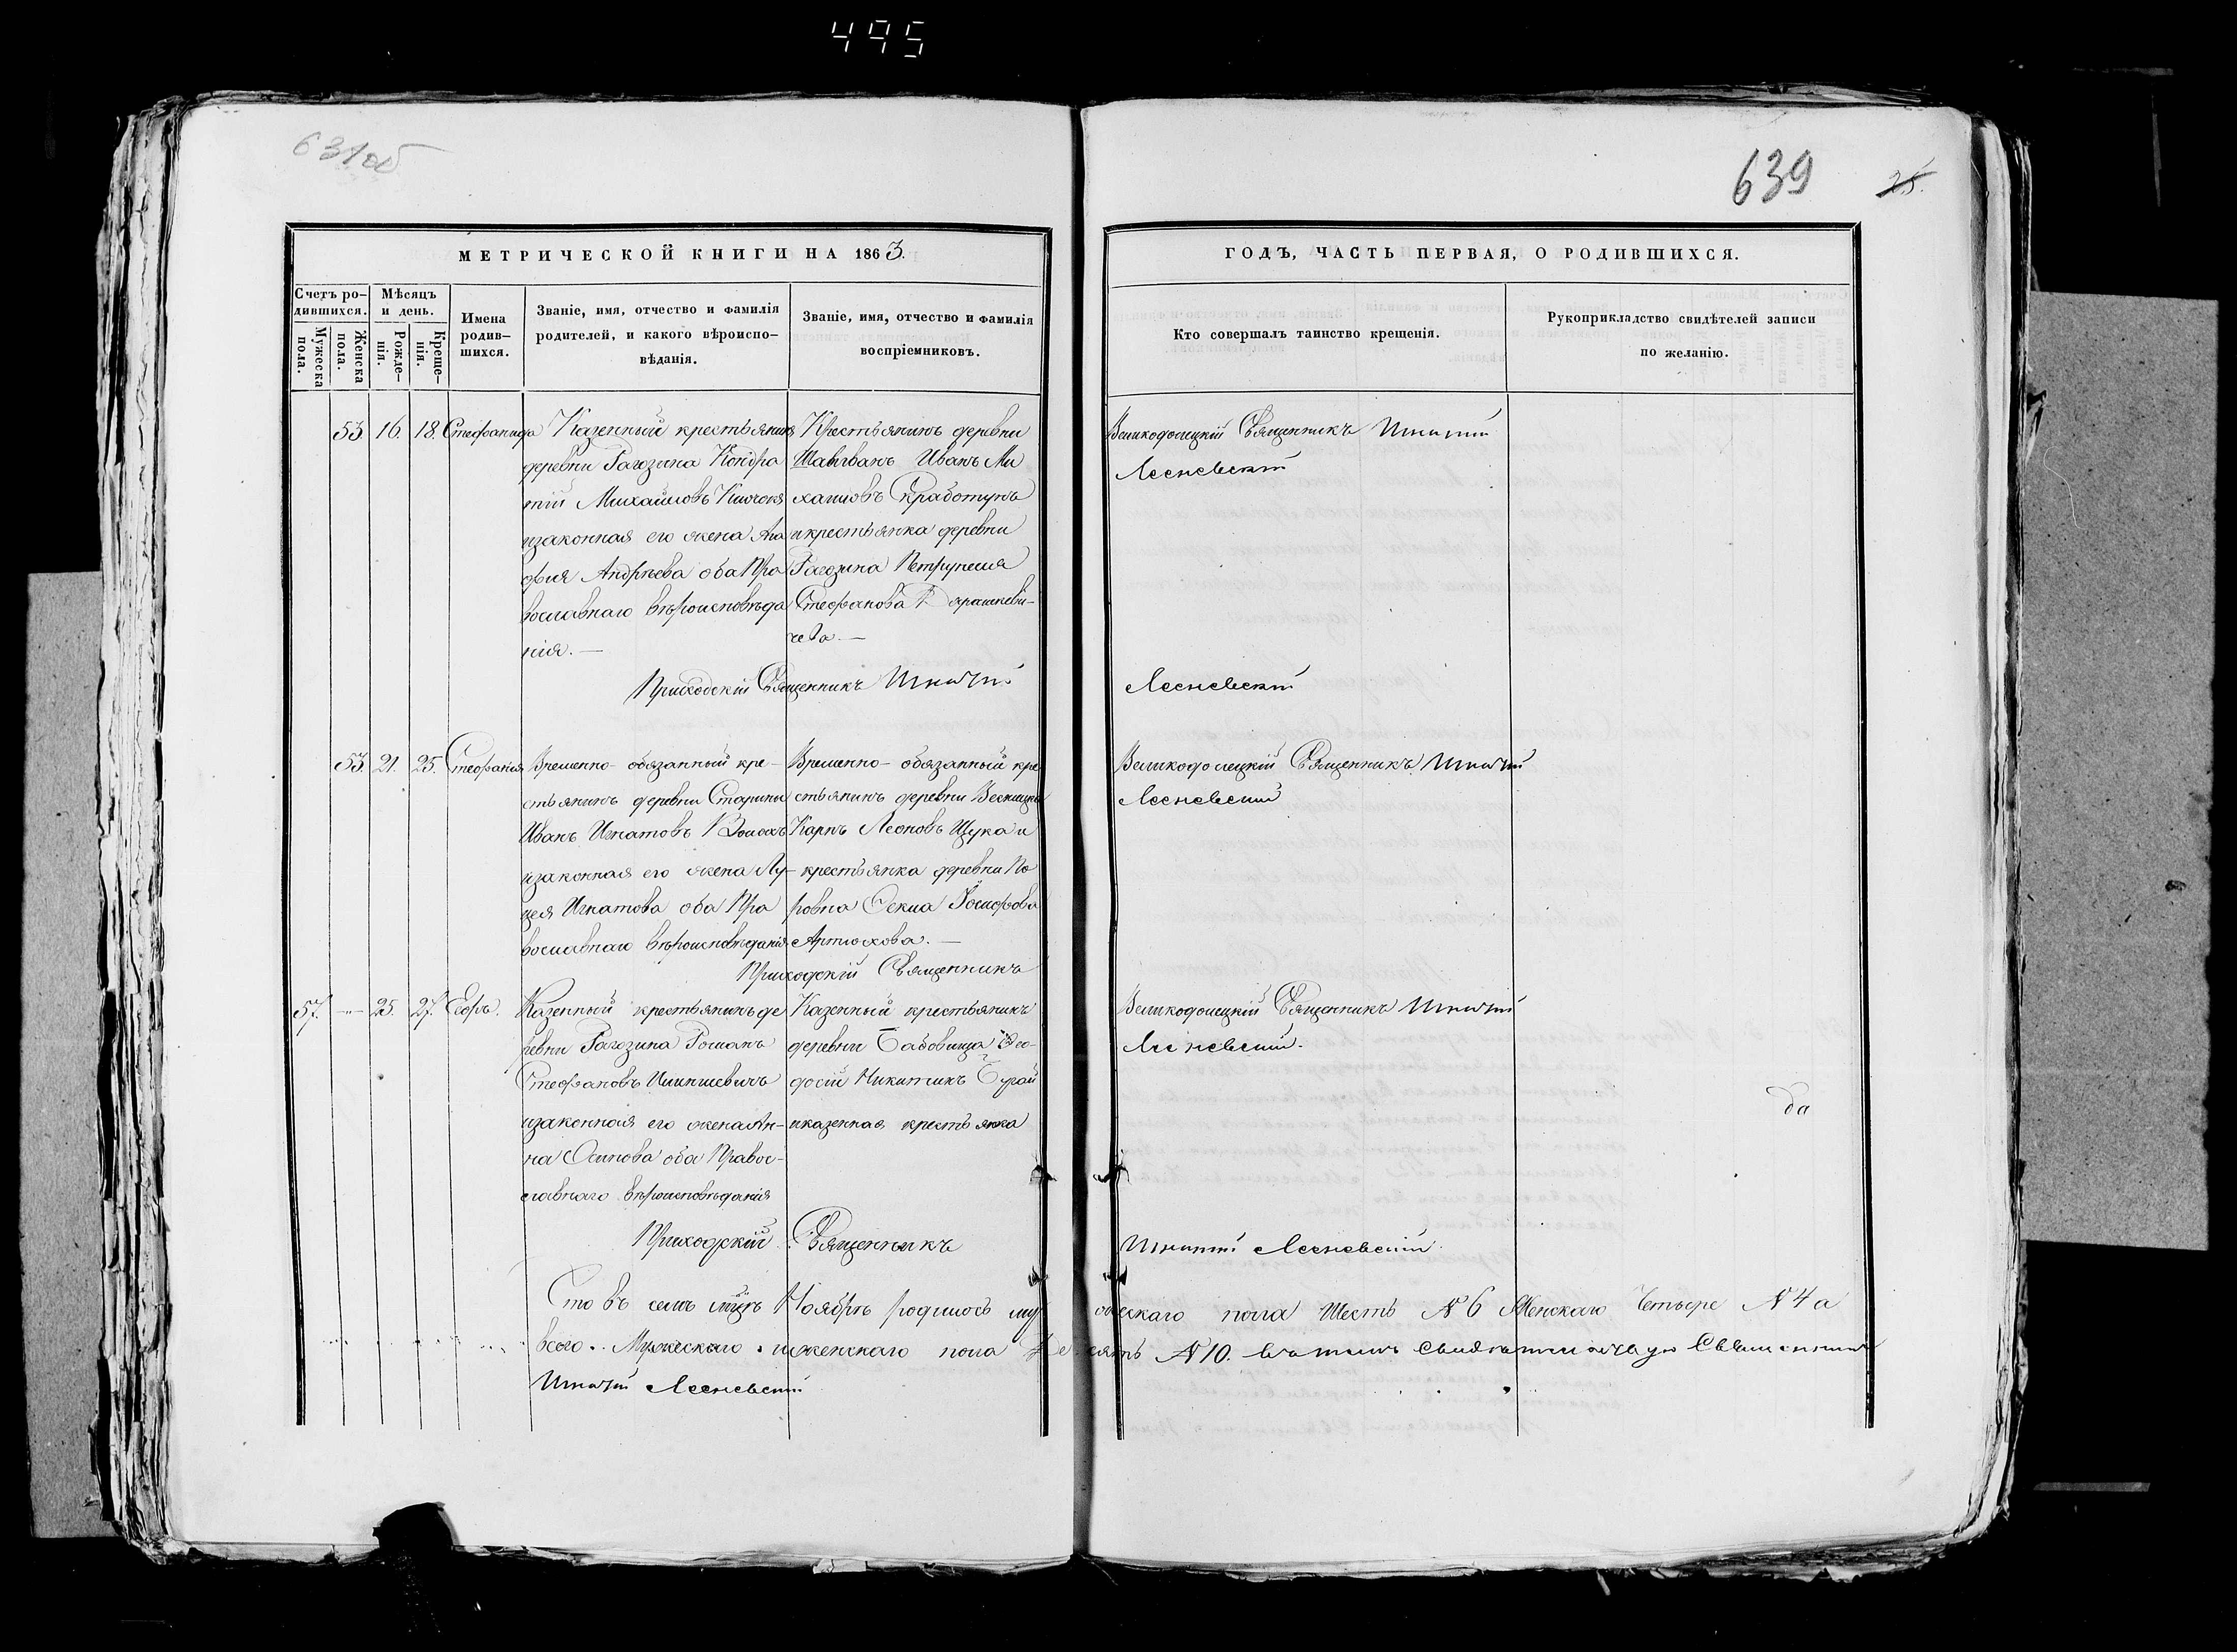 495
631об
639
25.
МЕТРИЧЕСКОЙ КНИГИ НА 1863.
ГОДЪ, ЧАСТЬ ПЕРВАЯ, О РОДИВШИХСЯ.
Счетъ ро-
дившихся.
Мужеска
пола.
Женска
пола.
Мѣсяцъ
и день.
Рожде-
нія.
Креще-
нія.
Имена
родив-
шихся.
Званіе, имя, отчество и фамилія
родителей, и какого вѣроиспо-
вѣданія.
Званіе, имя, отчество и фамилія
воспріемниковъ.
Кто совершалъ таинство крещенія.
Рукоприкладство свидѣтелей записи
по желанію.
53. 16. 18. Стефанида
Казенный крестьянинъ
деревни Рагозина Кондра
тій Михайловъ
изаконная его жена Ага
фія Андрѣева оба Пра
вославнаго вѣроисповѣда
нія. —
Крестьянинъ деревни
Иванъ Ми
хаиловъ
икрестьянка деревни
Рагозина Петрунеля
Стефанова
чева. —
Великодолецкій Священникъ Игнатій
Лесневскій
Приходскій Священникъ Игнатій
Лесневскій
53. 21. 25. Стефанія
Временно-обязанный кре-
стьянинъ деревни Старины
Иванъ Игнатовъ Волохъ
изаконная его жена Лу-
цея Игнатова оба Пра
вославнаго вѣроисповѣданія.
Временно-обязанный кре
стьянинъ деревни
Карпъ Леоновъ Щука и
крестьянка деревни По
ровна Текла
Артюхова. —
Великодолецкій Священникъ Игнатій
Лесневскій
Приходскій Священникъ
57. — 25. 27. Егоръ.
Казенный крестьянинъ де
ревни Рагозина Романъ
Стефановъ
изаконная его жена Ан-
на Осипова оба Правос-
лавнаго вѣроисповѣданія
Казенный крестьянинъ
деревни Бабовища Ѳео-
досій Никитинъ
иказенная крестьянка
Великодолецкій Священникъ Игнатій
Лесневскій.
Приходскій Священникъ
Игнатій Лесневскій.
Что въ семъ мцѣ Ноябрѣ родилось му
жескаго пола Шесть №6 Женскаго Четыре №4 а
всего Мужескаго иженскаго пола де
сять №10. въ томъ свидѣтельствую Священникъ
Игнатій Лесневскій